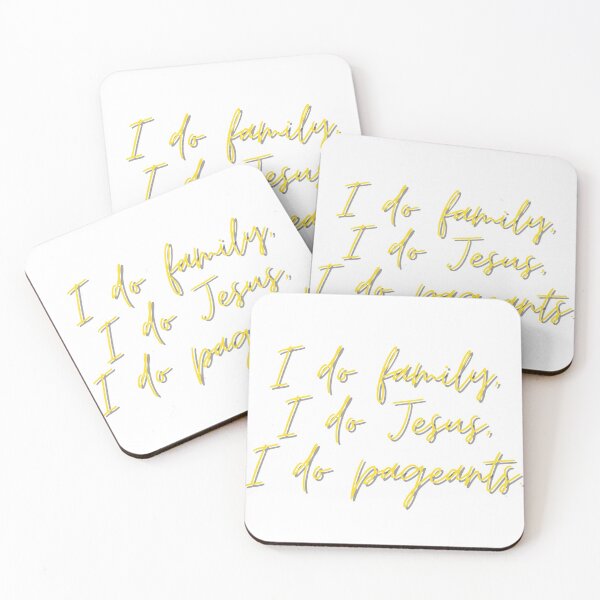 I do family,
I do Jesus
I do family,
I do Jesus,
I do pageants
I do family,
I do Jesus,
I do pag
I do family,
I do Jesus,
I do pageants.